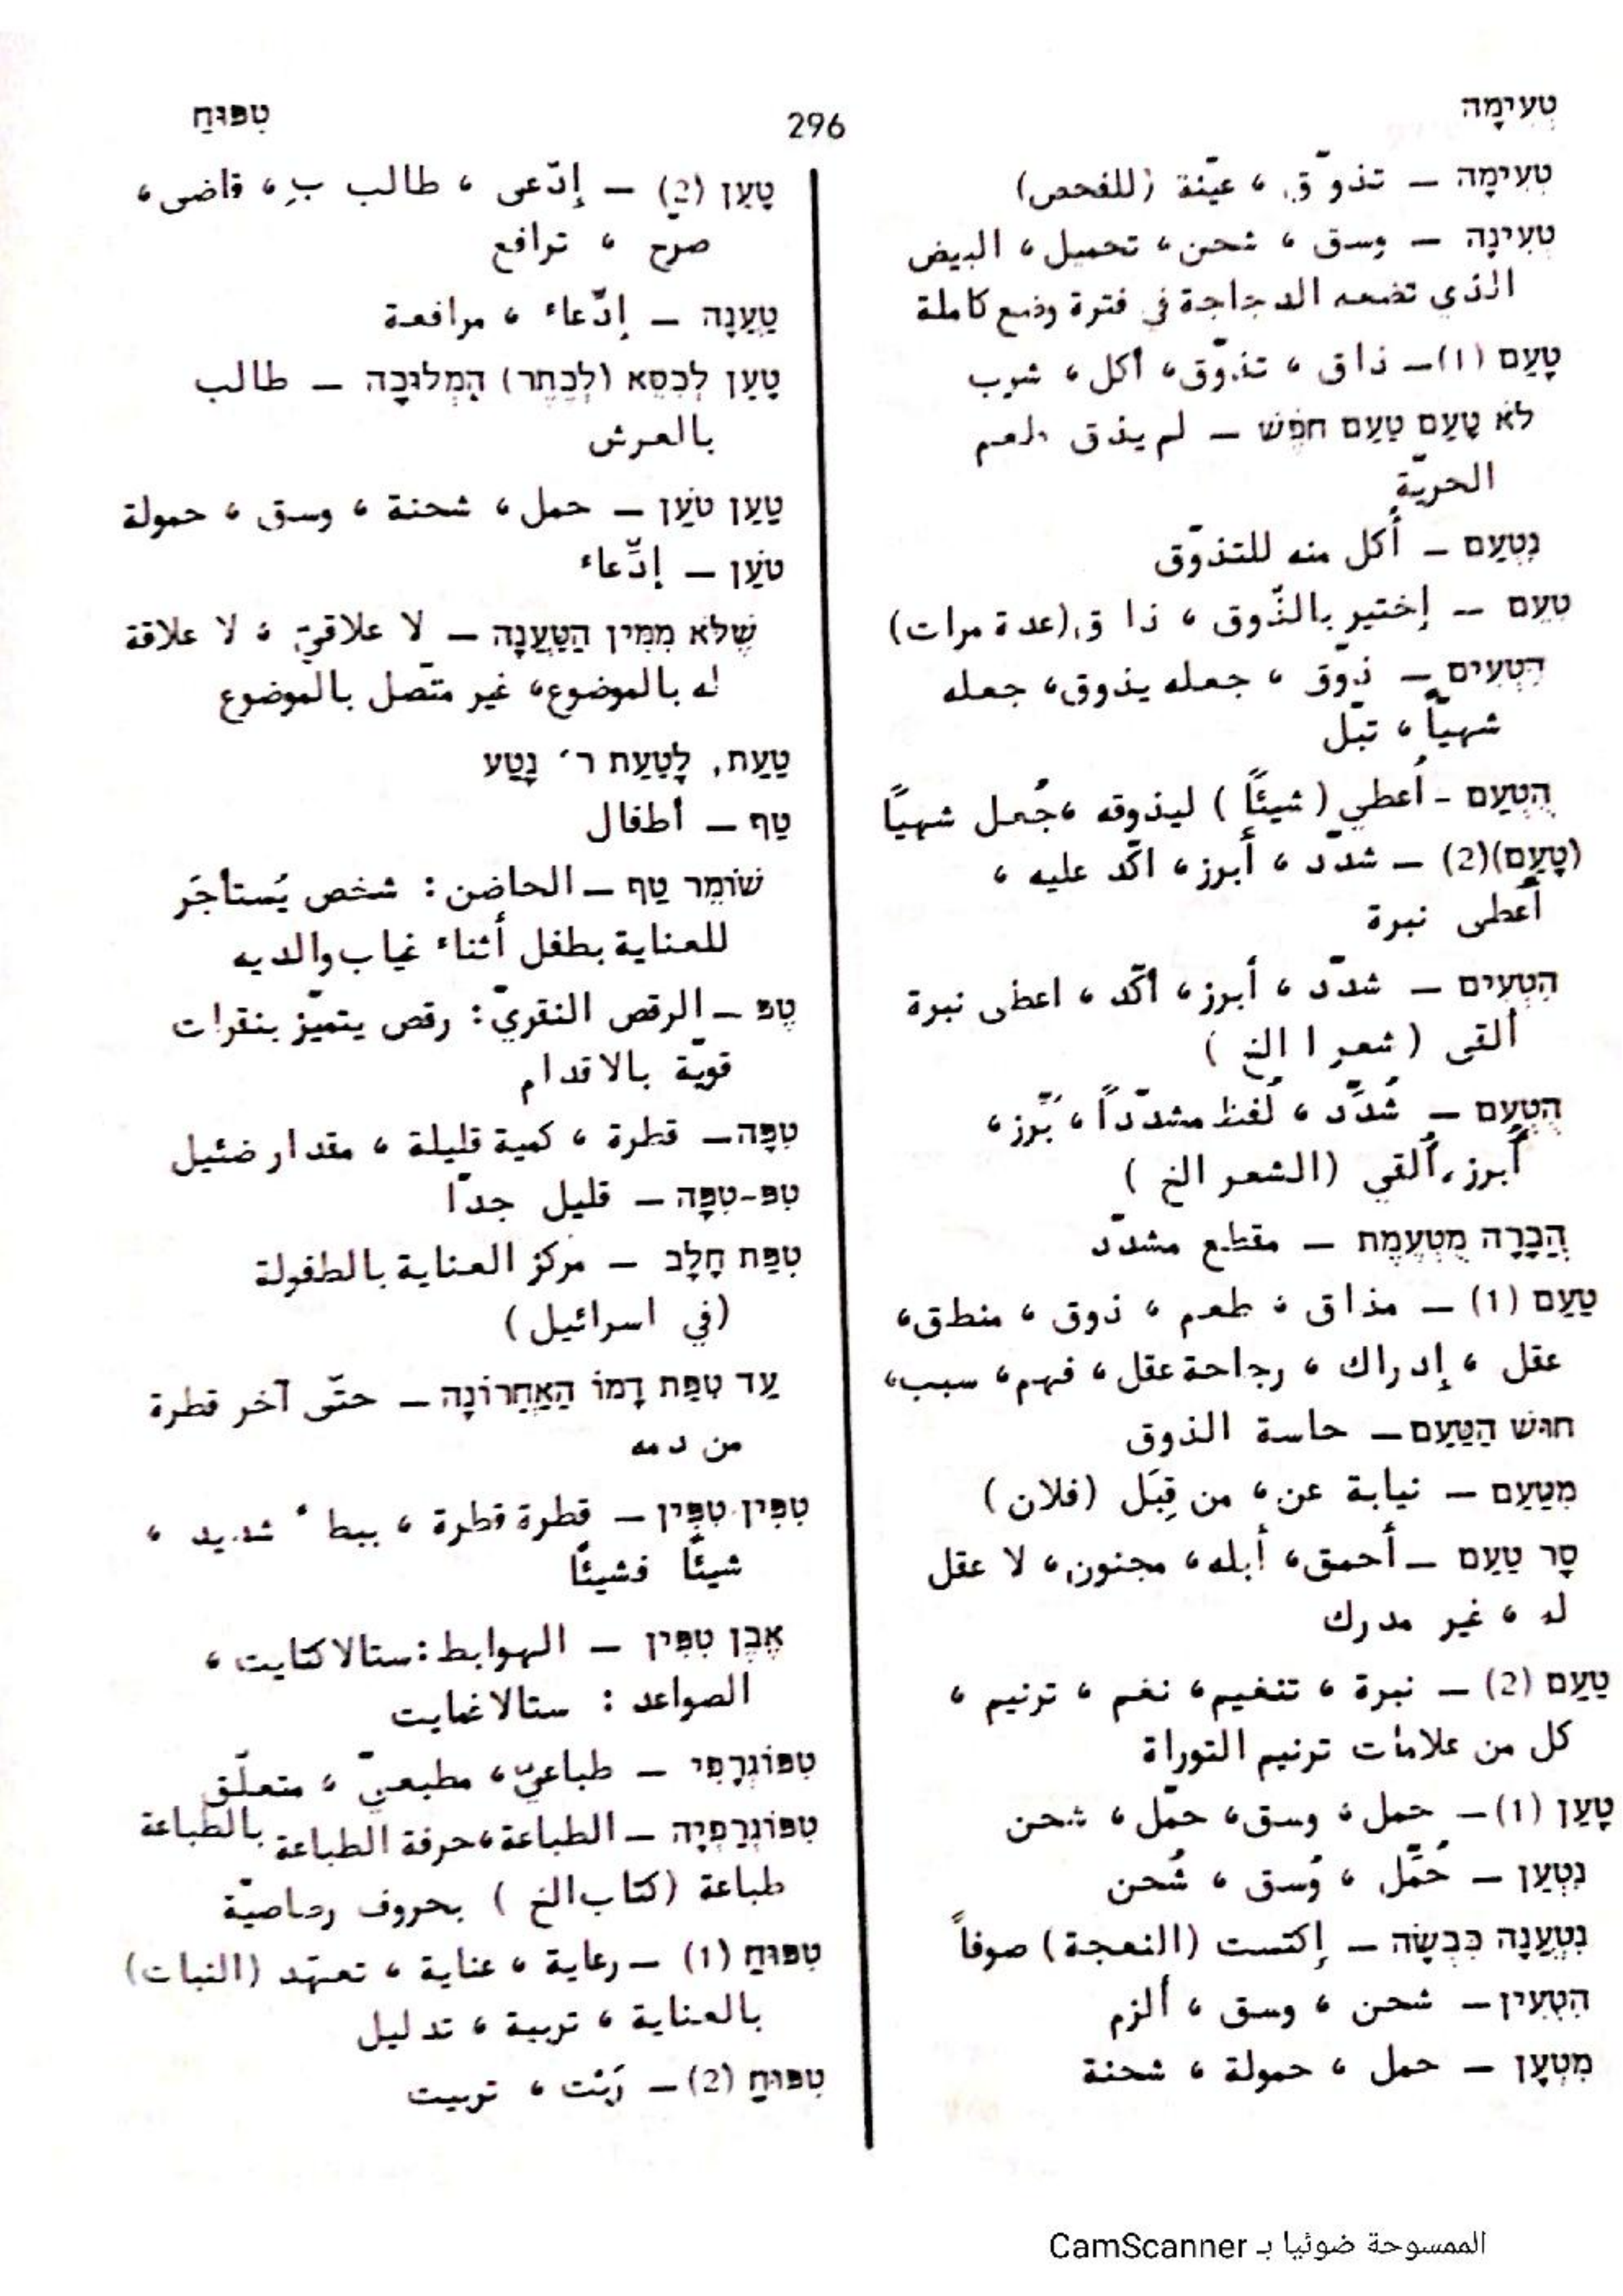 טְעִימָה
296
טִפּוּחַ
טְעִימָה – تذوّق ، عيّنة (للفحص)
טְעִינָה – وسق ، شحن ، تحميل ، البيض
الذي تضعه الدجاجة في فترة وضع كاملة
טָעַם (1) – ذاق ، تذوّق، أكل ، شرب
לֹא טָעַם טַעַם חֹפֶשׁ – لم يذق طعم
الحريّة
נִטְעַם – أُكل منه للتذوّق
טִעֵם – إختبر بالذّوق ، ذا ق (عدة مرات)
הִטְעִים – ذوّق ، جعله يذوق، جعله
شهيّاً ، تبّل
הֻטְעַם - أُعطي ( شيئًا ) ليذوقه ،جُعل شهيًا
(טָעַם)(2) – شدّد ، أبرز ، اكّد عليه ،
أعطى نبرة
הִטְעִים – شدّد ، أبرز ، أكّد ، اعطى نبرة
ألقى ( شعر ا الخ )
הֻטְעַם – شُدِّد ، لُفظ مشدّداً ، بُرّز ،
أُبرز ، أُلقي (الشعر الخ )
הֲבָרָה מֻטְעֶמֶת – مقطع مشدّد
טַעַם (1) – مذاق ، طعم ، ذوق ، منطق،
عقل ، إدراك ، رجاحة عقل ، فهم ، سبب،
חוּשׁ הַטַּעַם – حاسة الذوق
מִטַּעַם – نيابة عن ، من قِبَل (فلان )
סָר טַעַם – أحمق، أبله ، مجنون ، لا عقل
له ، غير مدرك
טַעַם (2) – نبرة ، تنغيم ، نغم ، ترنيم ،
كل من علامات ترنيم التوراة
טָעַן (1) – حمل ، وسق، حمّل ، شحن
נִטְעַן – حُمِّل ، وُسق ، شُحن
נִטְעֲנָה כִּבְשָׂה – إكتست (النعجة) صوفاً
הִטְעִין – شحن ، وسق ، ألزم
מִטְעָן – حمل ، حمولة ، شحنة
טָעַן (2) – إدّعى ، طالب بِ ، قاضى ،
صرّح ، ترافع
טַעֲנָה – إدّعاء ، مرافعة
טָעַן לְכִסֵּא (לְכֶתֶר) הַמְּלוּכָה – طالب
بالعرش
טַעַן טֹעַן – حمل ، شحنة ، وسق ، حمولة
טֹעַן – إدِّعاء
שֶׁלֹּא מִמִּין הַטַּעֲנָה – لا علاقيّ ، لا علاقة
له بالموضوع، غير متّصل بالموضوع
טַעַת, לָטַעַת ר׳ נָטַע
טַף – أطفال
שׁוֹמֵר טַף – الحاضن : شخص يُستأجَر
للعناية بطفل أثناء غياب والديه
טֶפּ – الرقص النقريّ : رقص يتميّز بنقرات
قويّة بالاقدام
טִפָּה – قطرة ، كمية قليلة ، مقدار ضئيل
טִפּ-טִפָּה – قليل جدّا
טִפַּת חָלָב – مركز العناية بالطفولة
(في اسرائيل )
עַד טִפַּת דָּמוֹ הָאַחֲרוֹנָה – حتّى آخر قطرة
من دمه
טִפִּין טִפִּין – قطرة قطرة ، ببطء شديد ،
شيئًا فشيئًا
אֶבֶן טִפִּין – الهوابط : ستالاكتايت ،
الصواعد : ستالاغمايت
טִפּוֹגְרָפִי – طباعيّ ، مطبعيّ ، متعلّق
بالطباعة
טִפּוֹגְרַפְיָה – الطباعة ،حرفة الطباعة
طباعة (كتاب الخ ) بحروف رصاصيّة
טִפּוּחַ (1) – رعاية ، عناية ، تعهّد (النبات)
بالعناية ، تربية ، تدليل
טִפּוּחַ (2) – رَبْت ، تربيت
الممسوحة ضوئيا بـ CamScanner